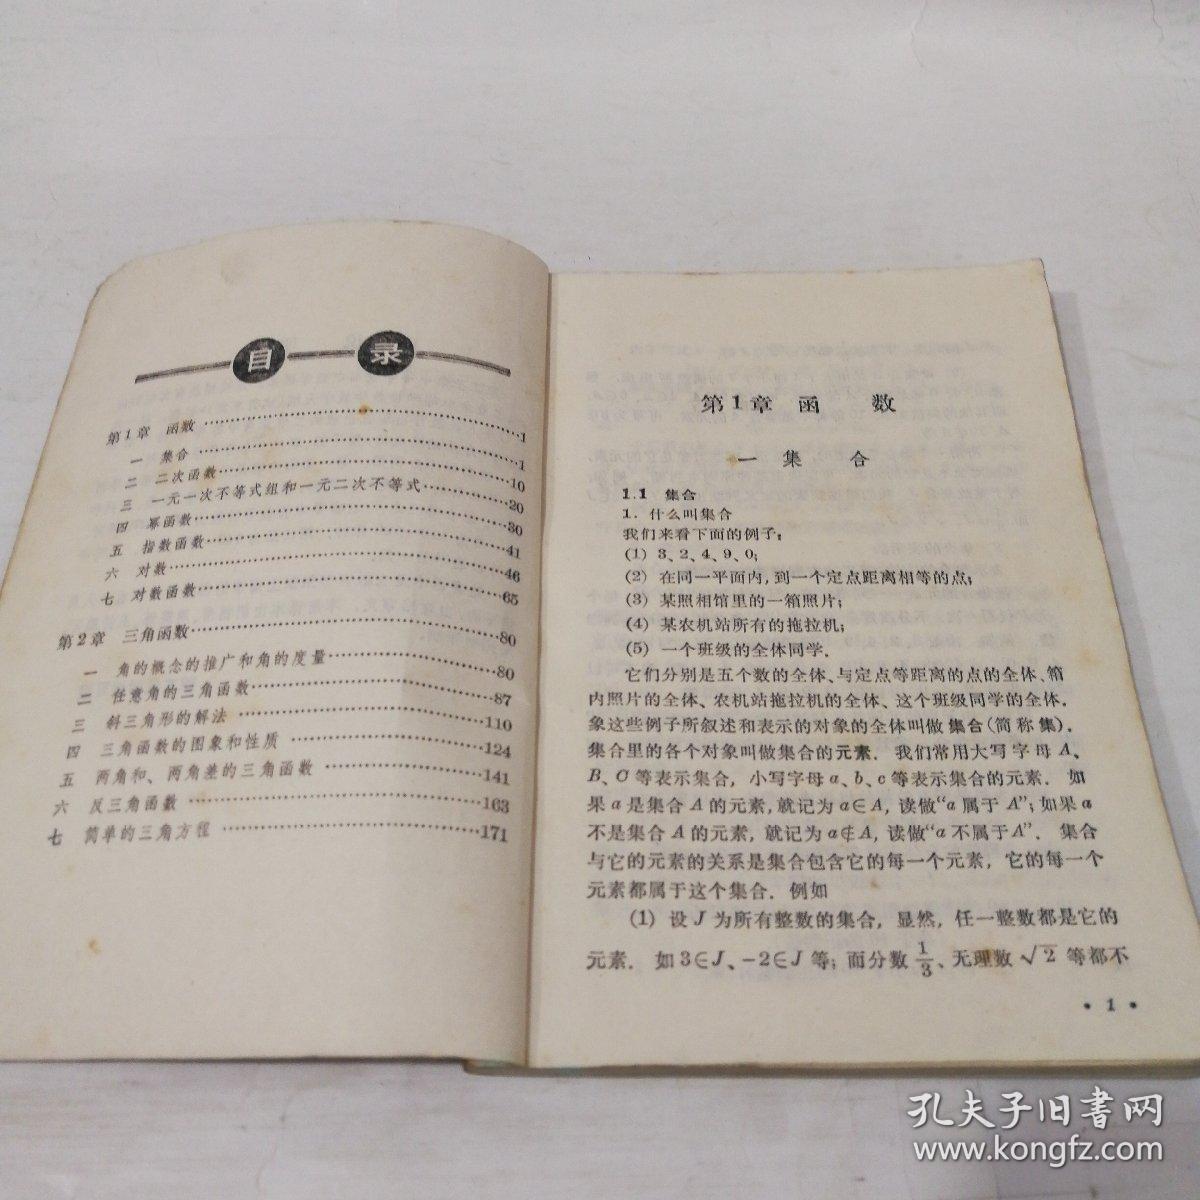 目录
第1章 函数……1
一 集合……1
二 二次函数……10
三 一元一次不等式组和一元二次不等式……20
四 幂函数……30
五 指数函数……41
六 对数……46
七 对数函数……65
第2章 三角函数……80
一 角的概念的推广和角的度量……80
二 任意角的三角函数……87
三 斜三角形的解法……110
四 三角函数的图象和性质……124
五 两角和、两角差的三角函数……141
六 反三角函数……163
七 简单的三角方程……171
第1章 函 数
一 集 合
1.1 集合
1. 什么叫集合
我们来看下面的例子:
(1) 3、2、4、9、0;
(2) 在同一平面内,到一个定点距离相等的点;
(3) 某照相馆里的一箱照片;
(4) 某农机站所有的拖拉机;
(5) 一个班级的全体同学.
它们分别是五个数的全体、与定点等距离的点的全体、箱
内照片的全体、农机站拖拉机的全体、这个班级同学的全体.
象这些例子所叙述和表示的对象的全体叫做集合(简称集).
集合里的各个对象叫做集合的元素. 我们常用大写字母 A、
B、C 等表示集合, 小写字母 a、b、c 等表示集合的元素. 如
果 a 是集合 A 的元素,就记为 a∈A, 读做“a 属于 A”;如果 a
不是集合 A 的元素, 就记为 a∉A, 读做“a 不属于 A”. 集合
与它的元素的关系是集合包含它的每一个元素, 它的每一个
元素都属于这个集合. 例如
(1) 设 J 为所有整数的集合, 显然, 任一整数都是它的
元素. 如 3∈J、-2∈J 等; 而分数 1/3、无理数 √2 等都不
• 1 •
孔夫子旧书网
www.kongfz.com